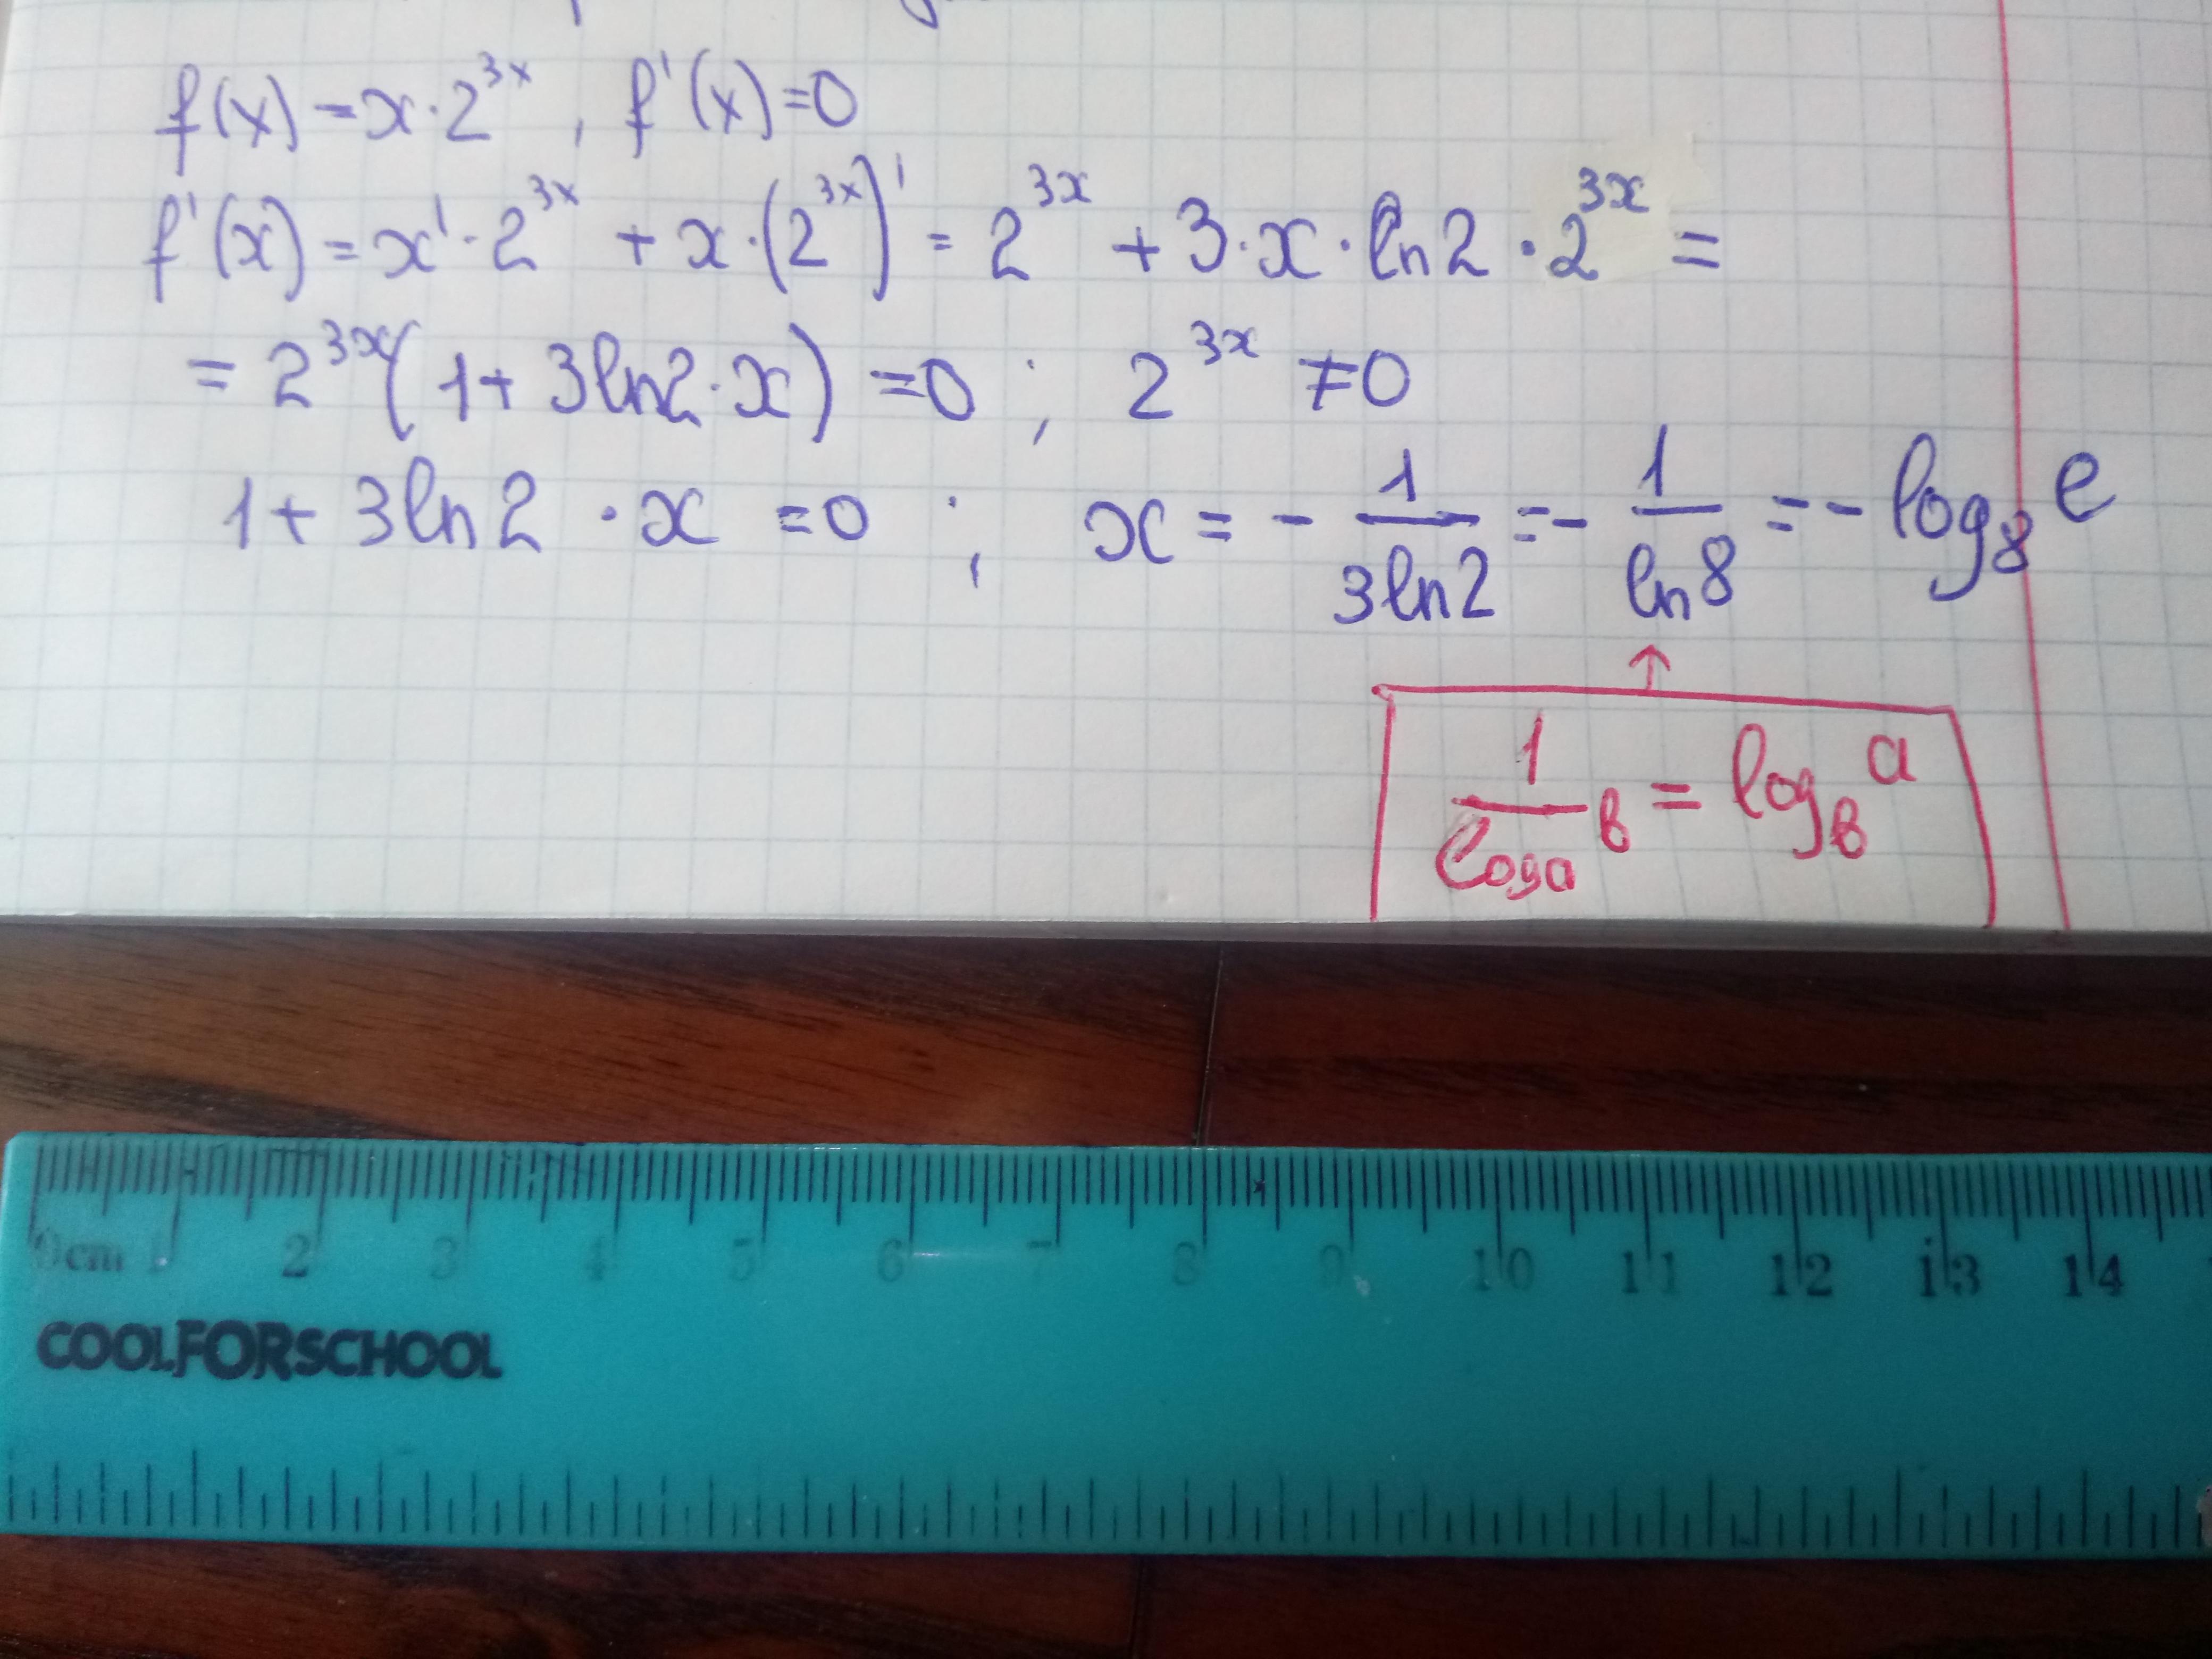 f(x) = x · 2^{3x} , f'(x) = 0
f'(x) = x' · 2^{3x} + x · (2^{3x})' = 2^{3x} + 3 · x · ln2 · 2^{3x} =
= 2^{3x}(1 + 3ln2 · x) = 0 ; 2^{3x} ≠ 0
1 + 3ln2 · x = 0 ; x = - \frac{1}{3ln2} = - \frac{1}{ln8} = - log_8 e
↑
\frac{1}{log_a в} = log_в a
0cm 1 2 3 4 5 6 7 8 9 10 11 12 13 14
COOLFORSCHOOL